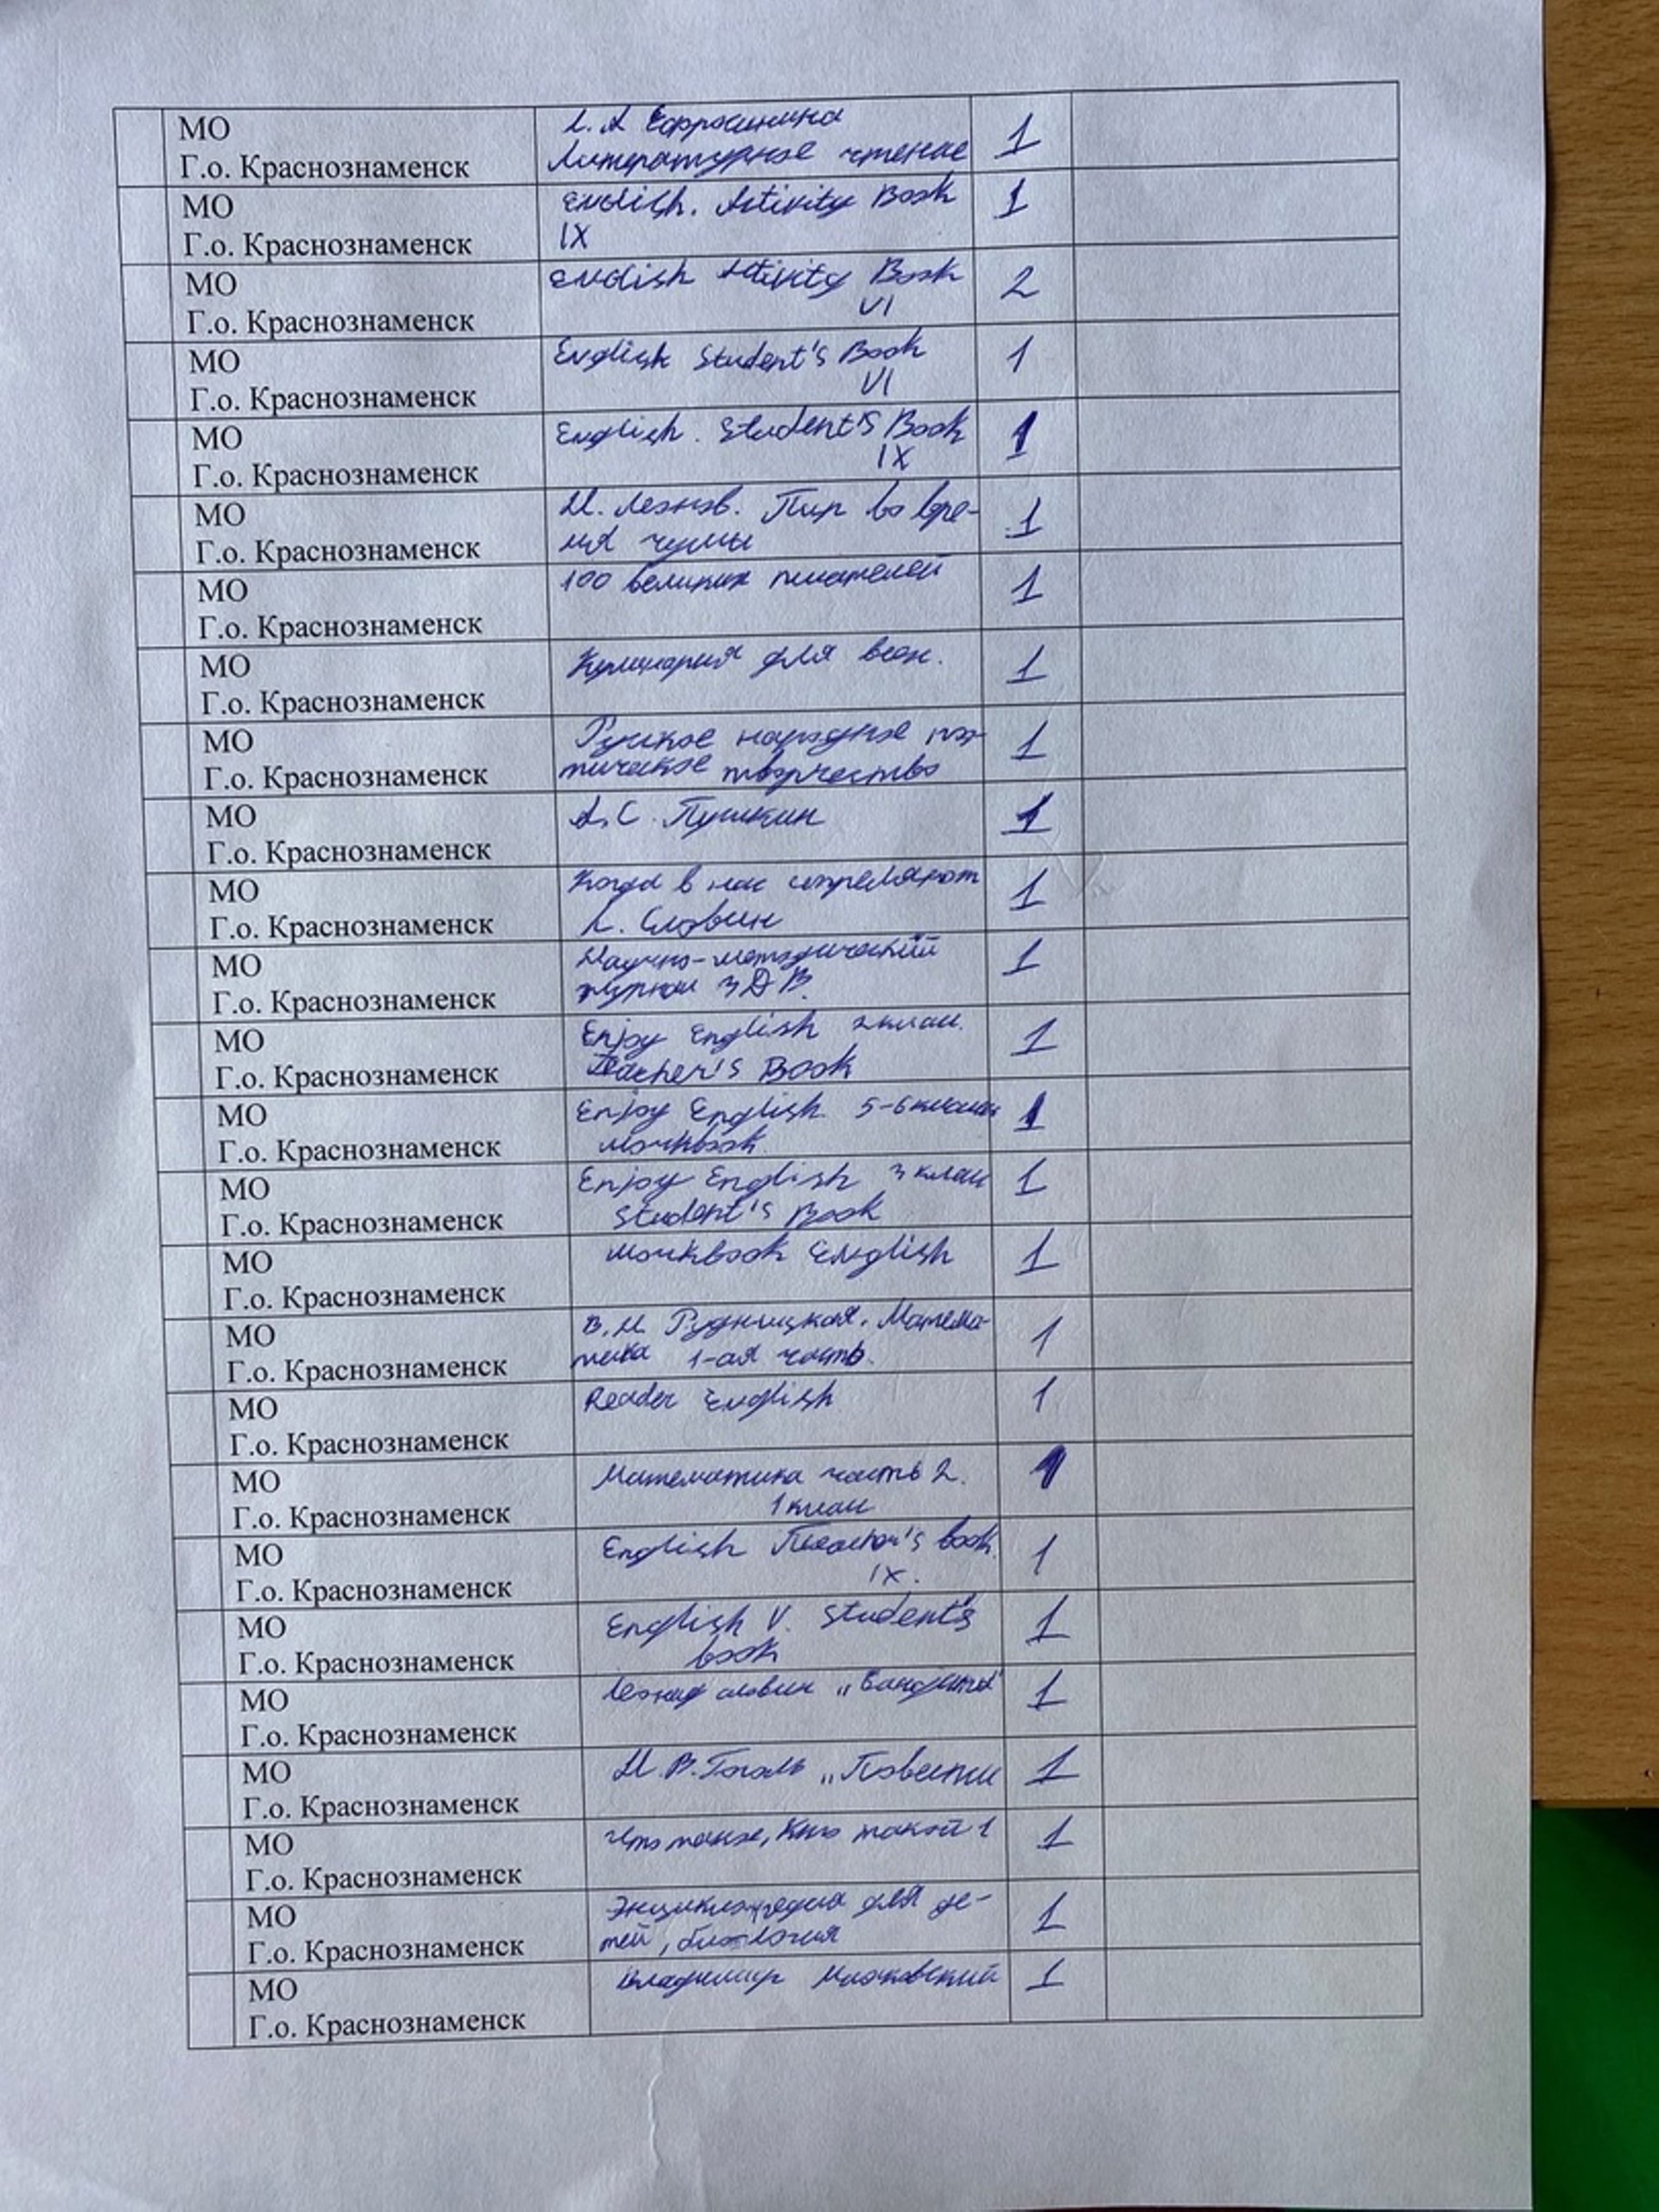 МО
Г.о. Краснознаменск
Л.А Ефросинина
Литературное чтение
1
МО
Г.о. Краснознаменск
English. Activity Book
IX
1
МО
Г.о. Краснознаменск
English Activity Book
VI
2
МО
Г.о. Краснознаменск
English Student's Book
VI
1
МО
Г.о. Краснознаменск
English. Student's Book
IX
1
МО
Г.о. Краснознаменск
Н. Леонов. Пир во вре-
мя чумы
1
МО
Г.о. Краснознаменск
100 великих писателей
1
МО
Г.о. Краснознаменск
Кулинария для всех.
1
МО
Г.о. Краснознаменск
Русское народное поэ-
тическое творчество
1
МО
Г.о. Краснознаменск
А.С. Пушкин
1
МО
Г.о. Краснознаменск
Когда в нас стреляют
Л. Словин
1
МО
Г.о. Краснознаменск
Научно-методический
журнал ЗДВ.
1
МО
Г.о. Краснознаменск
Enjoy English 2 класс.
Teacher's Book
1
МО
Г.о. Краснознаменск
Enjoy English. 5-6 классы
Workbook.
1
МО
Г.о. Краснознаменск
Enjoy English 3 класс
Student's Book
1
МО
Г.о. Краснознаменск
Workbook English
1
МО
Г.о. Краснознаменск
В.Н. Рудницкая. Матема-
тика 1-ая часть.
1
МО
Г.о. Краснознаменск
Reader English
1
МО
Г.о. Краснознаменск
Математика часть 2.
1 класс
1
МО
Г.о. Краснознаменск
English Teacher's book.
IX.
1
МО
Г.о. Краснознаменск
English V. Student's
book
1
МО
Г.о. Краснознаменск
Леонид словин „Бандиты"
1
МО
Г.о. Краснознаменск
Н.В. Гоголь „Повести
1
МО
Г.о. Краснознаменск
Что такое, Кто такой 1
1
МО
Г.о. Краснознаменск
Энциклопедия для де-
тей, биология
1
МО
Г.о. Краснознаменск
Владимир Маяковский
1